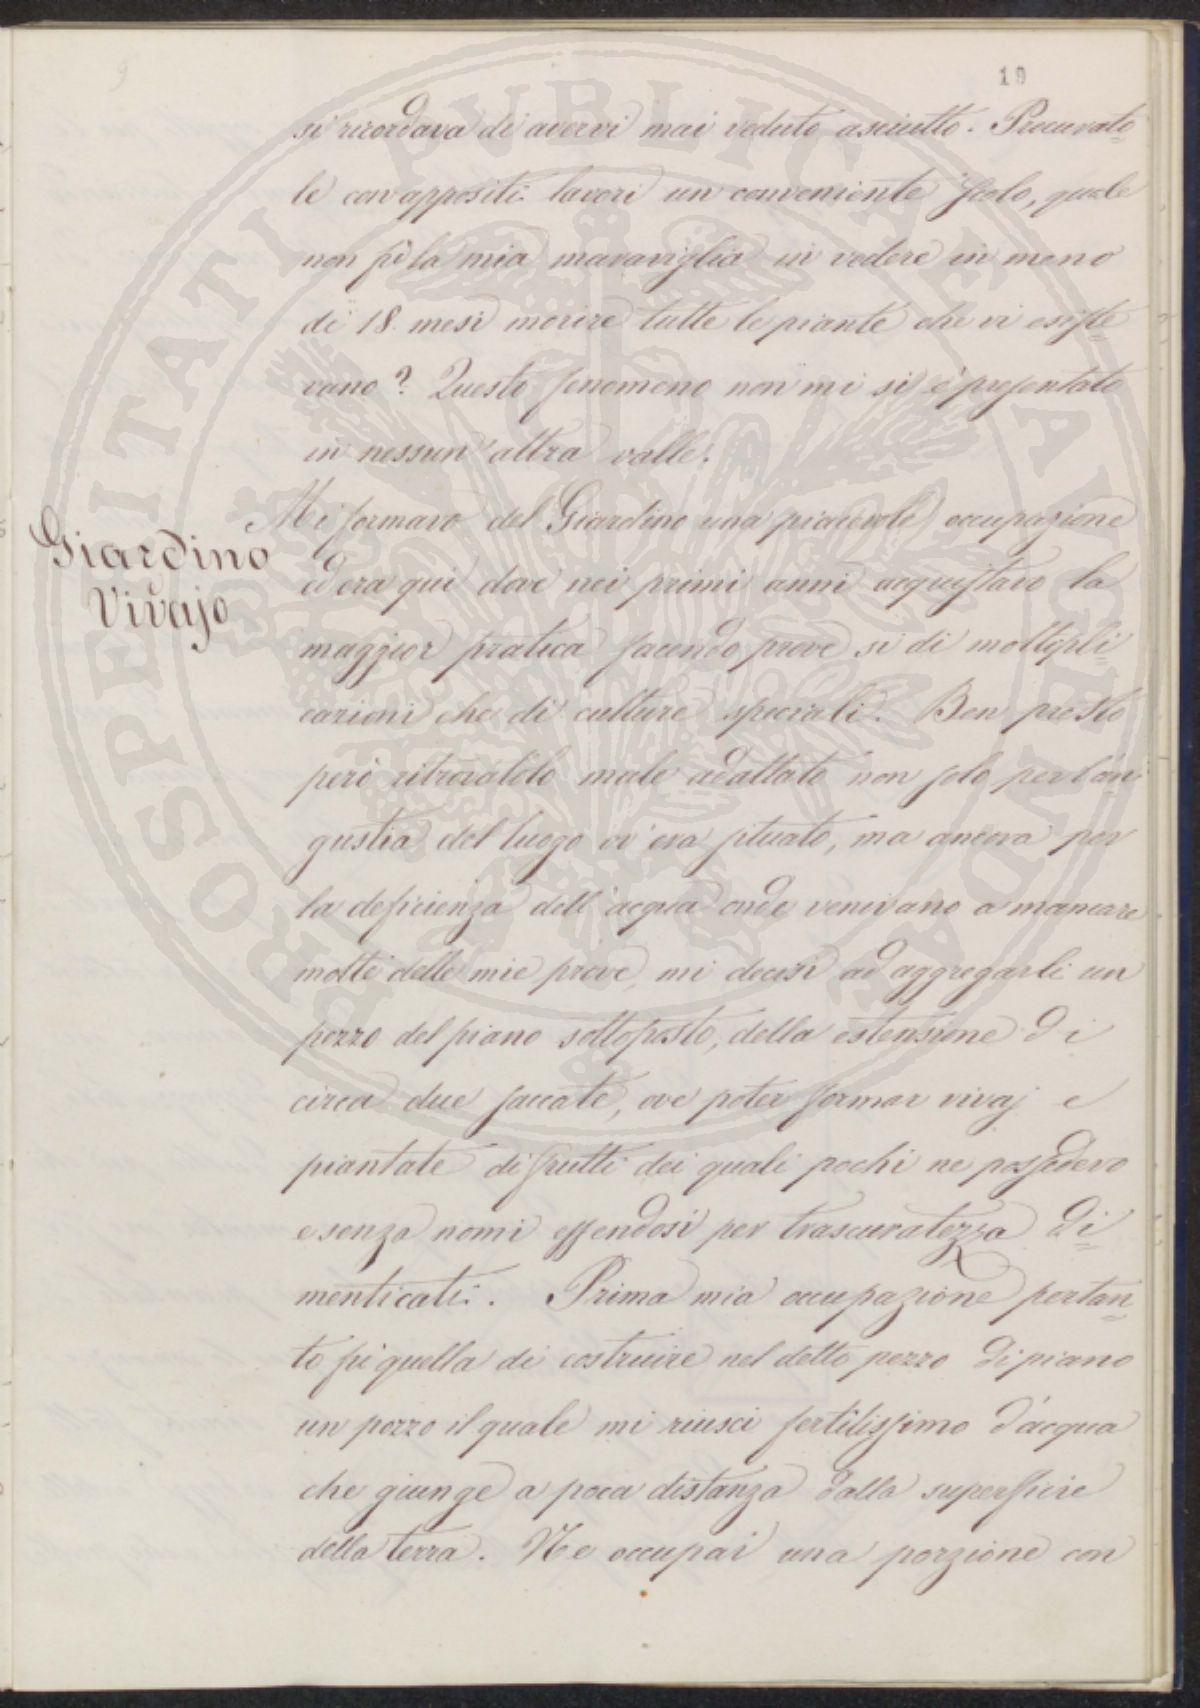 19
si ricordava di avervi mai veduto asciutto. Procurato-
le con appositi lavori un conveniente scolo, quale
non fù la mia maraviglia in vedere in meno
di 18 mesi morire tutte le piante che vi esiste-
vano? Questo fenomeno non mi si è presentato
in nessun'altra valle.
Giardino
Vivajo
Mi formavo del Giardino una piacevole occupazione
ed era qui dove nei primi anni acquistavo la
maggior pratica facendo prove si di moltipli-
cazioni che di culture speciali. Ben presto
però ritrovatolo male adattato non solo per l'an-
gustia del luogo ov'era situato, ma ancora per
la deficienza dell'acqua onde venivano a mancare
molte delle mie prove, mi decisi ad aggregarli un
pezzo del piano sottoposto, della estensione di
circa due saccate, ove poter formar vivaj e
piantate di frutti dei quali pochi ne possedevo
e senza nomi essendosi per trascuratezza di-
menticati. Prima mia occupazione pertan-
to fù quella di costruire nel detto pezzo di piano
un pozzo il quale mi riusci fertilissimo d'acqua
che giunge a poca distanza dalla superficie
della terra. Ne occupai una porzione con
PROSPERITATI PVBLICAE AVGENDAE